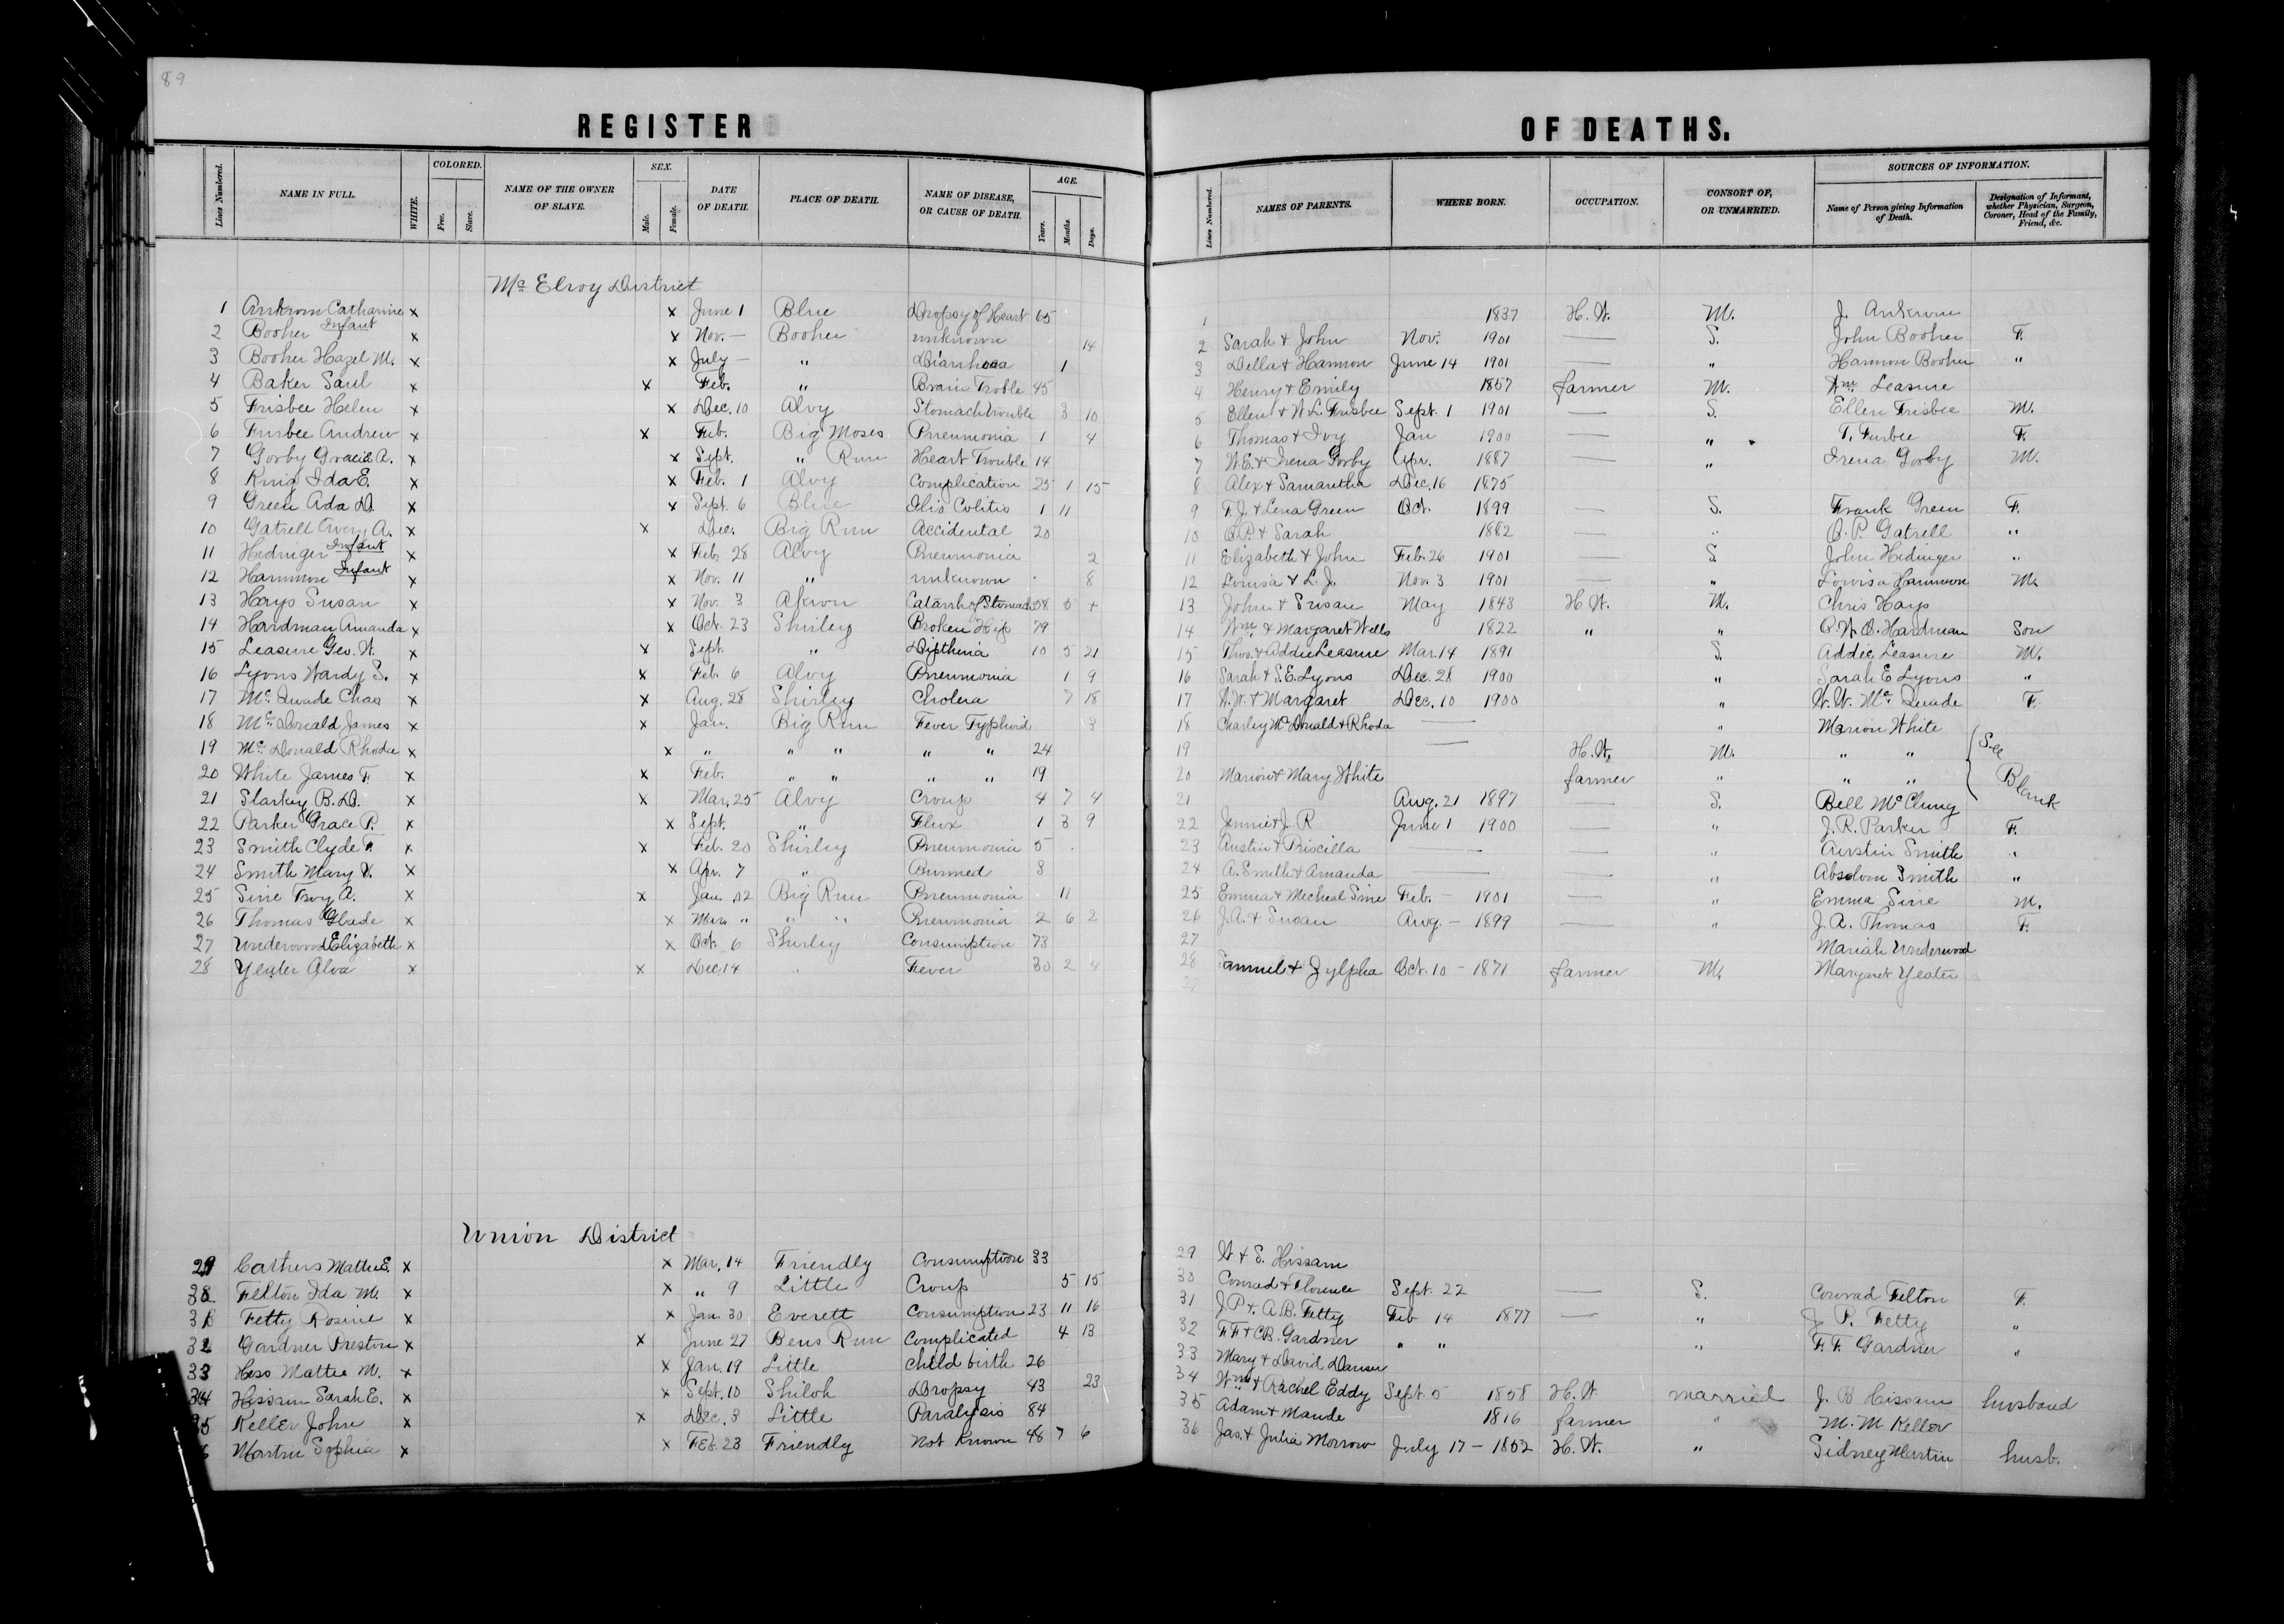 89
REGISTER OF DEATHS.
Lines Numbered. NAME IN FULL. WHITE. COLORED. Free. Slave. NAME OF THE OWNER OF SLAVE. SEX. Male. Female. DATE OF DEATH. PLACE OF DEATH. NAME OF DISEASE, OR CAUSE OF DEATH. AGE. Years. Months. Days. Lines Numbered. NAMES OF PARENTS. WHERE BORN. OCCUPATION. CONSORT OF, OR UNMARRIED. SOURCES OF INFORMATION. Name of Person giving Information of Death. Designation of Informant, whether Physician, Surgeon, Coroner, Head of the Family, Friend, &c.
Mc Elroy District
1 Ankrom Catharine x x June 1 Blue Dropsy of Heart 65 1 1837 H. W. M. J. Ankrom
2 Booher Infant x x Nov. — Booher unknown 14 2 Sarah & John Nov. 1901 — S. John Booher F.
3 Booher Hazel M. x x July — " Diarrhoea 1 3 Della & Harmon June 14 1901 — " Harmon Booher "
4 Baker Saul x x Feb. " Brain Troble 45 4 Henry & Emily 1857 farmer M. Wm Leasure
5 Frisbee Helen x x Dec. 10 Alvy Stomach trouble 3 10 5 Ellen & W. L. Frisbee Sept. 1 1901 — S. Ellen Frisbee M.
6 Furbee Andrew x x Feb. Big Moses Pneumonia 1 4 6 Thomas & Ivy Jan 1900 — " T. Furbee F.
7 Gorby Gracie A. x x Sept. " Run Heart Trouble 14 7 W. E. & Irena Gorby Apr. 1887 — " Irena Gorby M.
8 King Ida E. x x Feb. 1 Alvy Complication 25 1 15 8 Alex & Samantha Dec. 16 1875
9 Green Ada D. x x Sept. 6 Blue Colitis 1 11 9 F. J. & Lena Green Oct. 1899 — S. Frank Green F.
10 Gatrell Avery A. x x Dec. Big Run Accidental 20 10 O. P. & Sarah 1882 " O. P. Gatrell "
11 Hidinger Infant x x Feb. 28 Alvy Pneumonia 2 11 Elizabeth & John Feb. 26 1901 — S. John Hidinger "
12 Hammon Infant x x Nov. 11 " unknown 8 12 Louisa & L. J. Nov. 3 1901 — " Louisa Hammon M.
13 Hays Susan x x Nov. 3 Akron Catarrh of Stomach 58 5 + 13 John & Susan May 1843 H. W. M. Chris Hays
14 Hardman Amanda x x Oct. 23 Shirley Broken Hip 79 14 Wm & Margaret Wells 1822 " " Hardman Son
15 Leasure Geo. W. x x Sept. " Diptheria 10 5 21 15 Thos. & Addie Leasure Mar. 14 1891 S. Addie Leasure M.
16 Lyons Wardy S. x x Feb. 6 Alvy Pneumonia 1 9 16 Sarah & S. E. Lyons Dec. 28 1900 " Sarah E Lyons "
17 Mc Quade Chas x x Aug. 28 Shirley Cholera 7 18 17 W. W. & Margaret Dec. 10 1900 " W. W. Mc Quade F.
18 Mc Donald James x x Jan. Big Run Fever Typhoid 3 18 Charley Mc Donald & Rhoda — " Marion White
19 Mc Donald Rhoda x x " " " " " 24 19 — H. W. M. " " See
20 White James F. x x Feb. " " " " 19 20 Marion & Mary White farmer " " " Blank
21 Starkey B. D. x x Mar. 25 Alvy Croup 4 7 4 21 Aug. 21 1897 — S. Bell McClung
22 Parker Grace P. x x Sept. " Flux 1 3 9 22 Jennie & J. R June 1 1900 — " J. R. Parker F.
23 Smith Clyde F. x x Feb. 20 Shirley Pneumonia 5 23 Austin & Priscilla — — " Austin Smith "
24 Smith Mary V. x x Apr. 7 " Burned 8 24 A. Smith & Amanda — — " Absolom Smith "
25 Sine Troy A. x x Jan. 12 Big Run Pneumonia 11 25 Emma & Micheal Sine Feb. — 1901 — " Emma Sine M.
26 Thomas Glade x x Mar. " " " Pneumonia 2 6 2 26 J. A. & Susan Aug. — 1899 — " J. A. Thomas F.
27 Underwood Elizabeth x x Oct. 6 Shirley Consumption 73 27 Mariah Underwood
28 Yeater Alva x x Dec 14 " Fever 30 2 4 28 Samuel & Zylpha Oct. 10 — 1871 farmer M. Margaret Yeater
29
Union District
29 Cathers Mattie E. x x Mar. 14 Friendly Consumption 33 29 W & S. Hissam
30 Felton Ida M. x x " 9 Little Croup 5 15 30 Conrad & Florence Sept. 22 — S. Conrad Felton F.
31 Fetty Rosine x x Jan. 30 Everett Consumption 23 11 16 31 J. P & A. B. Fetty Feb 14 1877 — " J. P. Fetty "
32 Gardner Preston x x June 27 Bens Run Complicated 4 13 32 F F & C B. Gardner " " " F. F. Gardner "
33 Hess Mattie M. x x Jan. 19 Little Child birth 26 33 Mary & David
34 Hissam Sarah E. x x Sept. 10 Shiloh Dropsy 43 23 34 Wm & Rachel Eddy Sept. 5 1858 H. W married J. B Hissam husband
35 Keller John x x Dec. 3 Little Paralysis 84 35 Adam & Maude 1816 farmer " M. M Keller
Martin Sophia x x Feb. 23 Friendly Not Known 48 7 6 36 Jas. & Julia Morrow July 17 — 1852 H. W. " Sidney Martin husb.